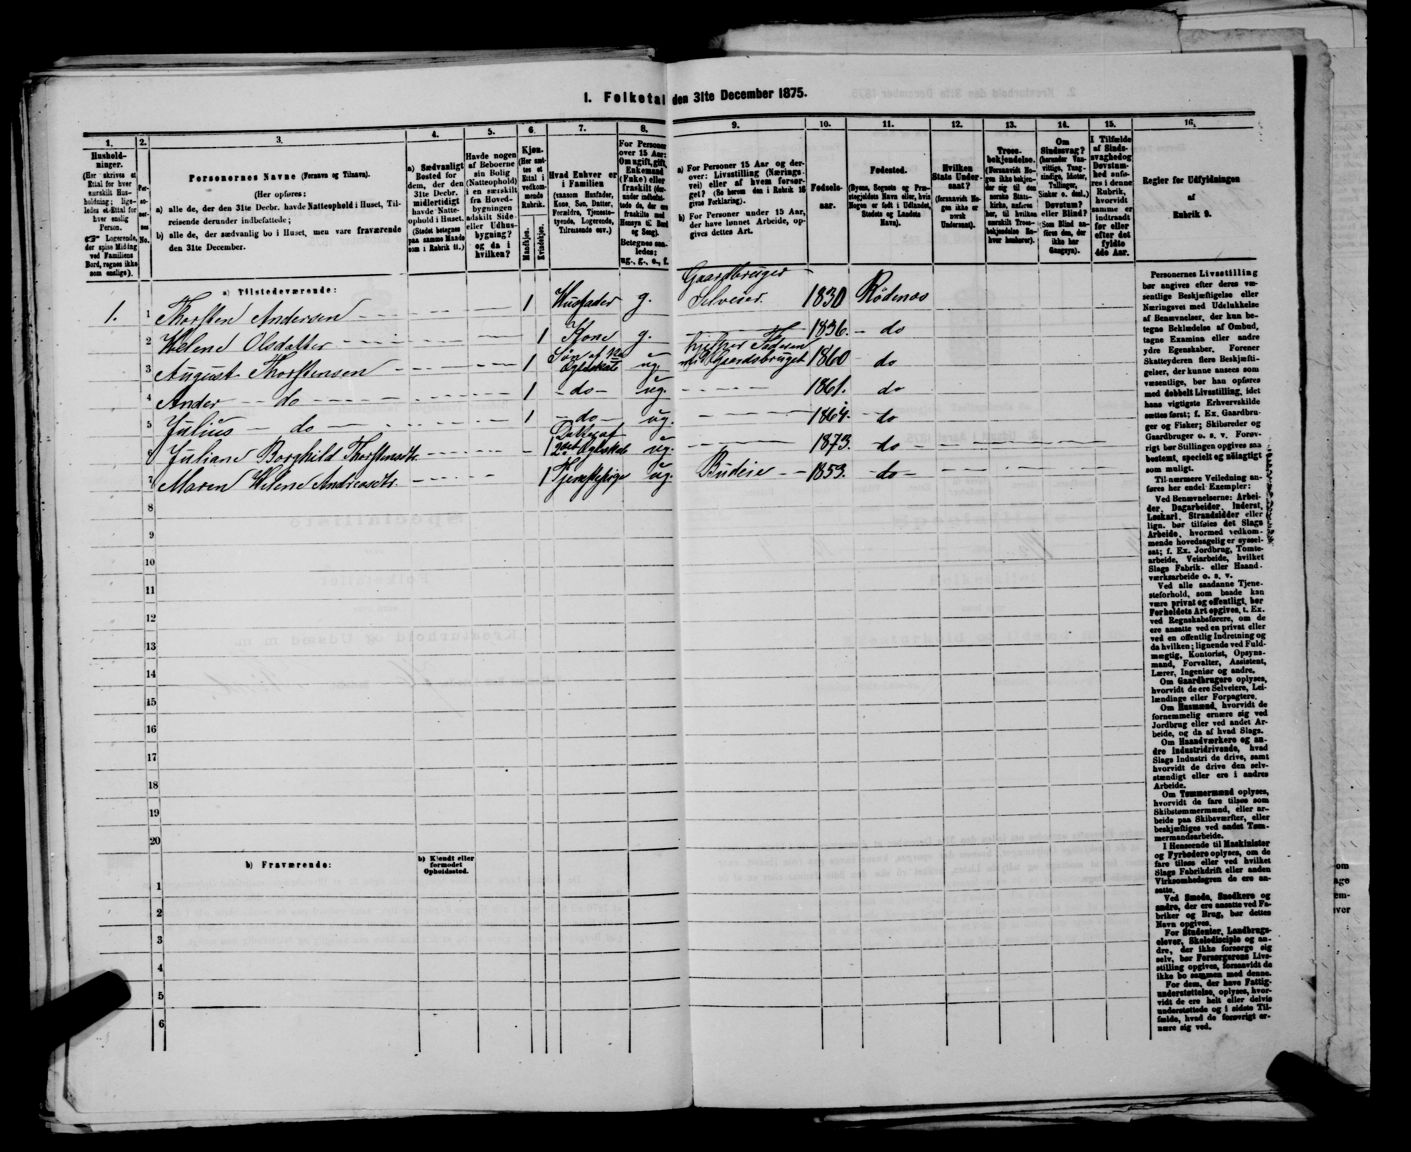 1. Folketal den 31te December 1875.
1. 2. 3. 4. 5. 6. 7. 8. 9. 10. 11. 12. 13. 14. 15. 16.
Hushold-
ninger.
(Her skrives et
Ettal for hver
særskilt Hus-
holdning; lige-
ledes et Ettal for
hver enslig
Person.
Logerende,
der spise Middag
ved Familiens
Bord, regnes ikke
som enslige).
Personernes Navne (Fornavn og Tilnavn).
(Her opføres:
a) alle de, der den 31te Decbr. havde Natteophold i Huset, Til-
reisende derunder indbefattede;
b) alle de, der sædvanlig bo i Huset, men vare fraværende
den 31te December.
a) Sædvanligt
Bosted for
dem, der den
31te Decbr.
midlertidigt
havde Natte-
ophold i Huset.
(Stedet betegnes
paa samme Maade
som i Rubrik 11.)
Havde nogen
af Beboerne
sin Bolig
(Natteophold)
i en særskilt
fra Hoved-
bygningen
adskilt Side-
eller Udhus-
bygning?
og da i
hvilken?
Kjøn.
(Her sæt-
tes et
Ettal i
vedkom-
mende
Rubrik.
Mandkjøn.
Kvindekjøn.
Hvad Enhver er
i Familien
(saasom Husfader,
Kone, Søn, Datter,
Forældre, Tjeneste-
tyende, Logerende,
Tilreisende osv.)
For Personer
over 15 Aar:
Om ugift, gift,
Enkemand
(Enke) eller
fraskilt
Betegnes saa-
ledes:
ug., g., e., f.
a) For Personer 15 Aar og der-
over: Livsstilling (Nærings-
vei) eller af hvem forsør-
get? (Se herom den i Rubrik 16
givne Forklaring).
b) For Personer under 15 Aar,
der have lønnet Arbeide, op-
gives dettes Art.
Fødsels-
aar.
Fødested.
(Byens, Sognets og Præ-
stegjeldets Navn eller, hvis
Nogen er født i Udlandet,
Stedets og Landets
Navn).
Hvilken
Stats Under-
saat?
(forsaavidt No-
gen ikke er
norsk
Undersaat).
Troes-
bekjendelse.
(Forsaavidt No-
gen ikke bekjen-
der sig til den
norske Stats-
kirke, anføres
her, til hvilken
særskilt Troes-
bekjendelse En-
hver henhører).
Om
Sindssvag?
(herunder Van-
vittige, Tung-
sindige, Idioter,
Tullinger,
Sinker o. desl.)
Døvstum?
eller Blind?
(Som Blind an-
føres den, der
ikke har
Gangsyn).
I Tilfælde
af Sinds-
svaghed og
Døvstum-
hed anfø-
res i denne
Rubrik,
hvorvidt
samme er
indtraadt
før eller
efter det
fyldte
4de Aar.
Regler for Udfyldningen
af
Rubrik 9.
a) Tilstedeværende:
1. 1 Thorsten Andersen 1 Husfader g. Gaardbruger Selveier. 1830 Rødenes
2 Helene Olsdatter 1 Kone g. 1836 do
3 August Thorstensen 1 ug 1860 do
4 Ander do 1 do ug. 1861. do
5 Julius do 1 do ug. 1864. do
6 Juliane Borghild Thorstensdtr. 1 ug. 1873. do
7 Maren Helene Andreasdtr. 1 Tjenestepige ug. Budeie 1853. do
8
9
10
11
12
13
14
15
16
17
18
19
20
b) Fraværende:
b) Kjendt eller
formodet
Opholdssted.
1
2
3
4
5
6
Personernes Livsstilling
bør angives efter deres væ-
sentlige Beskjæftigelse eller
Næringsvei med Udelukkelse
af Benævnelser, der kun be-
tegne Bekledelse af Ombud,
tagne Examina eller andre
ydre Egenskaber. Forener
Skatteyderen flere Beskjæfti-
gelser, der kunne ansees som
væsentlige, bør han opføres
med dobbelt Livsstilling, idet
hans vigtigste Erhvervskilde
sættes først; f. Ex. Gaardbru-
ger og Fisker; Skibsreder og
Gaardbruger o. s. v. Forøv-
rigt bør Stillingen opgives saa
bestemt, specielt og nøiagtigt
som muligt.
Til nærmere Veiledning an-
føres her endel Exempler:
Ved Benævnelserne: Arbei-
der, Dagarbeider, Inderst,
Løskarl, Strandsidder eller
lign. bør tilføies det Slags
Arbeide, hvormed vedkom-
mende hovedsagelig er syssel-
sat; f. Ex. Jordbrug, Tomte-
arbeide, Veiarbeide, hvilket
Slags Fabrik- eller Haand-
værksarbeide o. s. v.
Ved alle saadanne Tjene-
steforhold, som baade kan
være privat og offentligt, bør
Forholdets Art opgives, f. Ex.
ved Regnskabsførere, om de
ere ansatte ved en privat eller
ved en offentlig Indretning og
da hvilken; lignende ved Fuld-
mægtig, Kontorist, Opsyns-
mand, Forvalter, Assistent,
Lærer, Ingeniør og andre.
Om Gaardbrugere oplyses,
hvorvidt de ere Selveiere, Lei-
lændinge eller Forpagtere.
Om Husmænd, hvorvidt de
fornemmelig ernære sig ved
Jordbrug eller ved andet Ar-
beide, og da af hvad Slags.
Om Haandværkere og an-
dre Industridrivende, hvad
Slags Industri de drive, samt
hvorvidt de drive den selv-
stændigt eller ere i andres
Arbeide.
Om Tømmermænd oplyses,
hvorvidt de fare tilsøs som
Skibstømmermænd, eller ar-
beide paa Skibsværfter, eller
beskjæftiges ved andet Tøm-
mermandsarbeide.
I Henseende til Maskinister
og Fyrbødere oplyses, om de
fare tilsøs eller ved hvilket
Slags Fabrikdrift eller anden
Virksomhedsgren de ere an-
satte.
Ved Smede, Snedkere og
andre, der ere ansatte ved Fa-
briker og Brug, bør dettes
Navn opgives.
For Studenter, Landbrugs-
elever, Skoledisciple og an-
dre, der ikke forsørge sig
selv, bør Forsørgerens Livs-
stilling opgives, forsaavidt de
ikke bo sammen med denne.
For dem, der have Fattig-
understøttelse, oplyses, hvor-
vidt de ere helt eller delvis
understøttede og i sidste Til-
fælde, hvad de forøvrigt er-
nære sig ved.